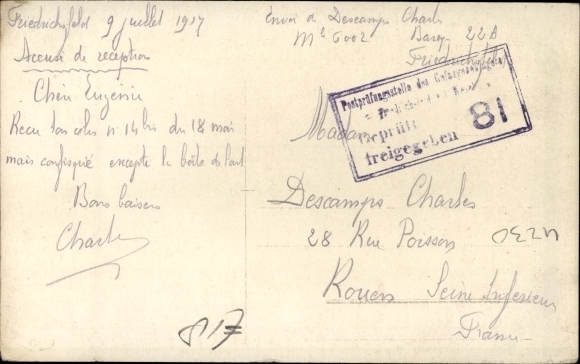 Friedrichsfeld 9 juillet 1917
Accusé de reception
Chère Eugénie
Recu ton colis n° 14 bis du 18 mai
mais confisqué excepté la boîte de lait
Bons baisers
Charles
Envoi de Descamps Charles
Mle 6002 Baraque 22A
Friedrichsfeld
Postprüfungsstelle des Gefangenenlagers
Geprüft
freigegeben 81
Madame
Descamps Charles
28 Rue Poisson
Rouen Seine Inférieure
France
817